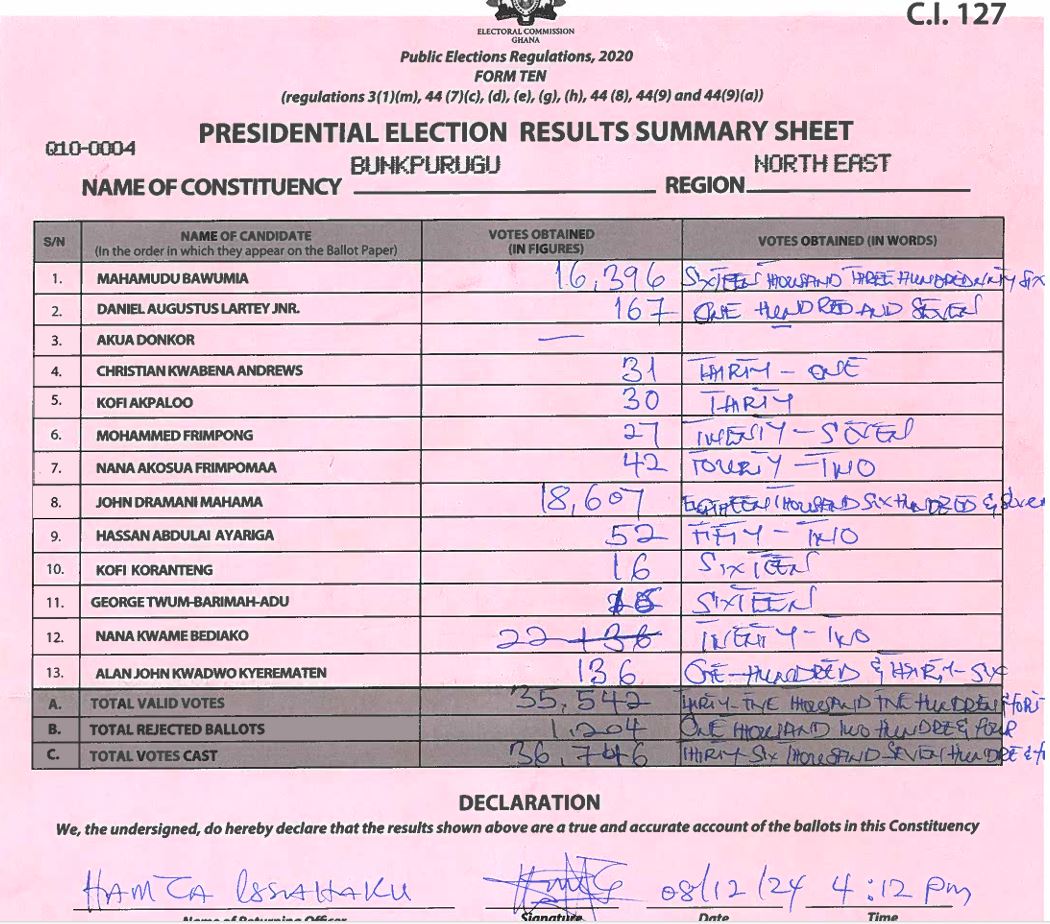 C.I. 127
ELECTORAL COMMISSION
GHANA
Public Elections Regulations, 2020
FORM TEN
(regulations 3(1)(m), 44 (7)(c), (d), (e), (g), (h), 44 (8), 44(9) and 44(9)(a))
PRESIDENTIAL ELECTION RESULTS SUMMARY SHEET
Q10-0004
NAME OF CONSTITUENCY BUNKPURUGU REGION NORTH EAST
S/N NAME OF CANDIDATE (In the order in which they appear on the Ballot Paper) VOTES OBTAINED (IN FIGURES) VOTES OBTAINED (IN WORDS)
1. MAHAMUDU BAWUMIA 16,396 SIXTEEN THOUSAND THREE HUNDRED NINTY SIX
2. DANIEL AUGUSTUS LARTEY JNR. 167 ONE HUNDRED AND SEVEN
3. AKUA DONKOR —
4. CHRISTIAN KWABENA ANDREWS 31 THIRTY - ONE
5. KOFI AKPALOO 30 THIRTY
6. MOHAMMED FRIMPONG 27 TWENTY - SEVEN
7. NANA AKOSUA FRIMPOMAA 42 - TWO
8. JOHN DRAMANI MAHAMA 18,607 EIGHTEEN THOUSAND SIX HUNDRED & Seven
9. HASSAN ABDULAI AYARIGA 52 FIFTY - TWO
10. KOFI KORANTENG 16 SIXTEEN
11. GEORGE TWUM-BARIMAH-ADU SIXTEEN
12. NANA KWAME BEDIAKO 22 136 TWENTY - TWO
13. ALAN JOHN KWADWO KYEREMATEN 136 ONE-HUNDRED & THIRTY-SIX
A. TOTAL VALID VOTES 35,542 THIRTY-FIVE THOUSAND FIVE HUNDRED
B. TOTAL REJECTED BALLOTS 1,204 ONE THOUSAND TWO HUNDRE & FOUR
C. TOTAL VOTES CAST 36,746 THIRTY SIX THOUSAND SEVEN HUNDRE &
DECLARATION
We, the undersigned, do hereby declare that the results shown above are a true and accurate account of the ballots in this Constituency
HAMZA ISSAHAKU 08/12/24 4:12 pm
Name of Returning Officer Signature Date Time